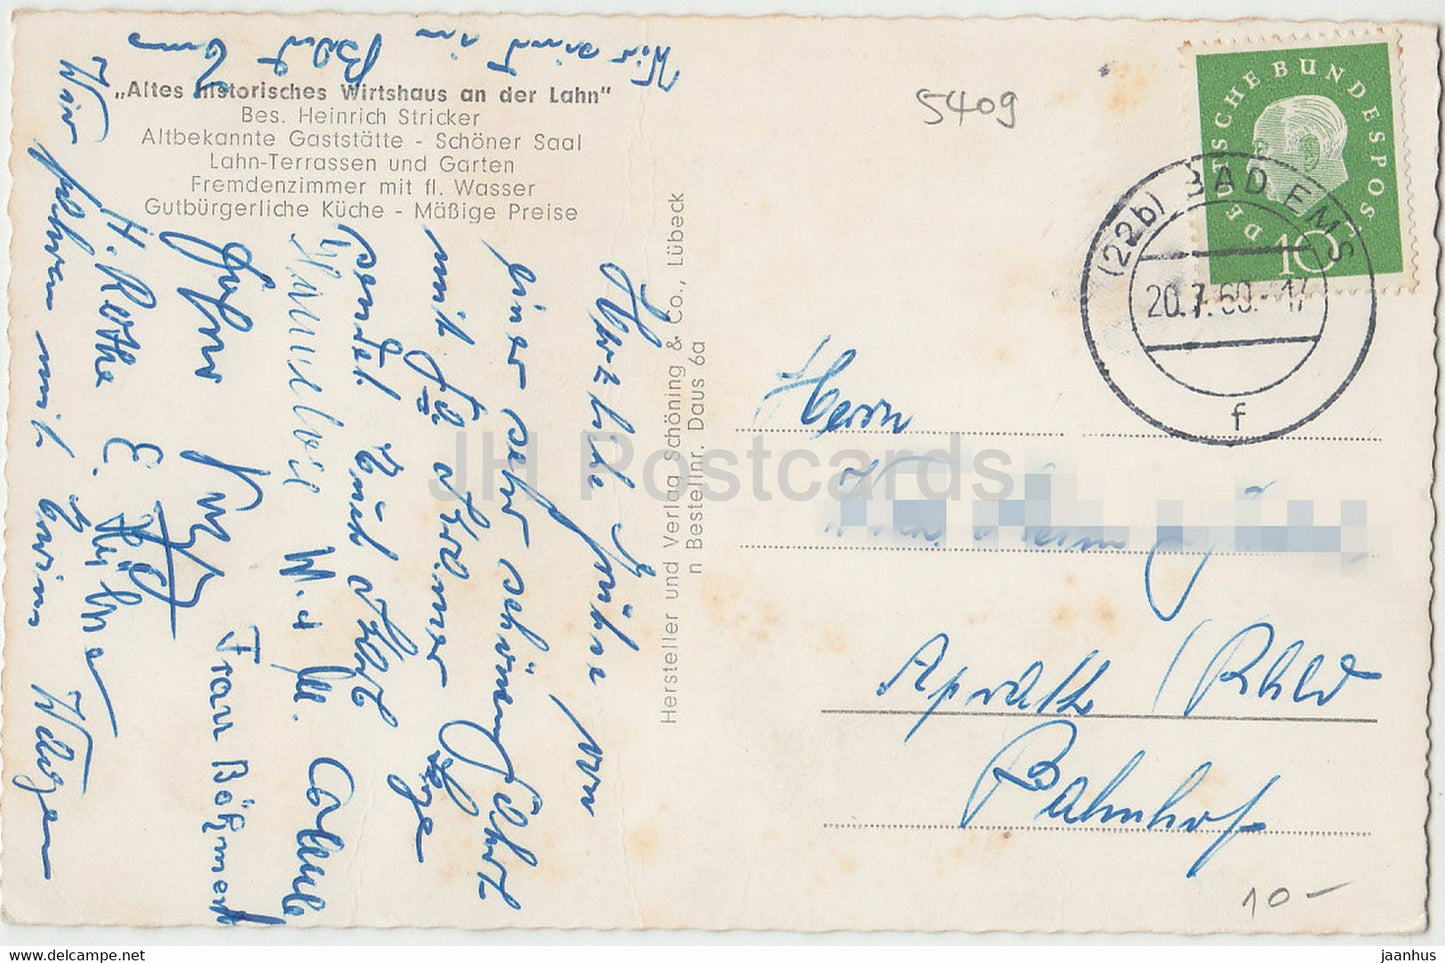 „Altes historisches Wirtshaus an der Lahn"
Bes. Heinrich Stricker
Altbekannte Gaststätte - Schöner Saal
Lahn-Terrassen und Garten
Fremdenzimmer mit fl. Wasser
Gutbürgerliche Küche - Mäßige Preise
Herzliche Grüße von
einer sehr schönen Fahrt
mit
sendet Euch
W. u. M.
Frau
H. Rothe E.
Wir fahren mit Wagen
Wir sind in Bad Ems
Hersteller und Verlag Schöning & Co., Lübeck
n Bestellnr. Daus 6a
5409
DEUTSCHE BUNDESPOST
10
(22b) BAD EMS
20.7.60.-17
f
Herrn
Aprath /Rhld
Bahnhof
10-
JH Postcards
jaanhus